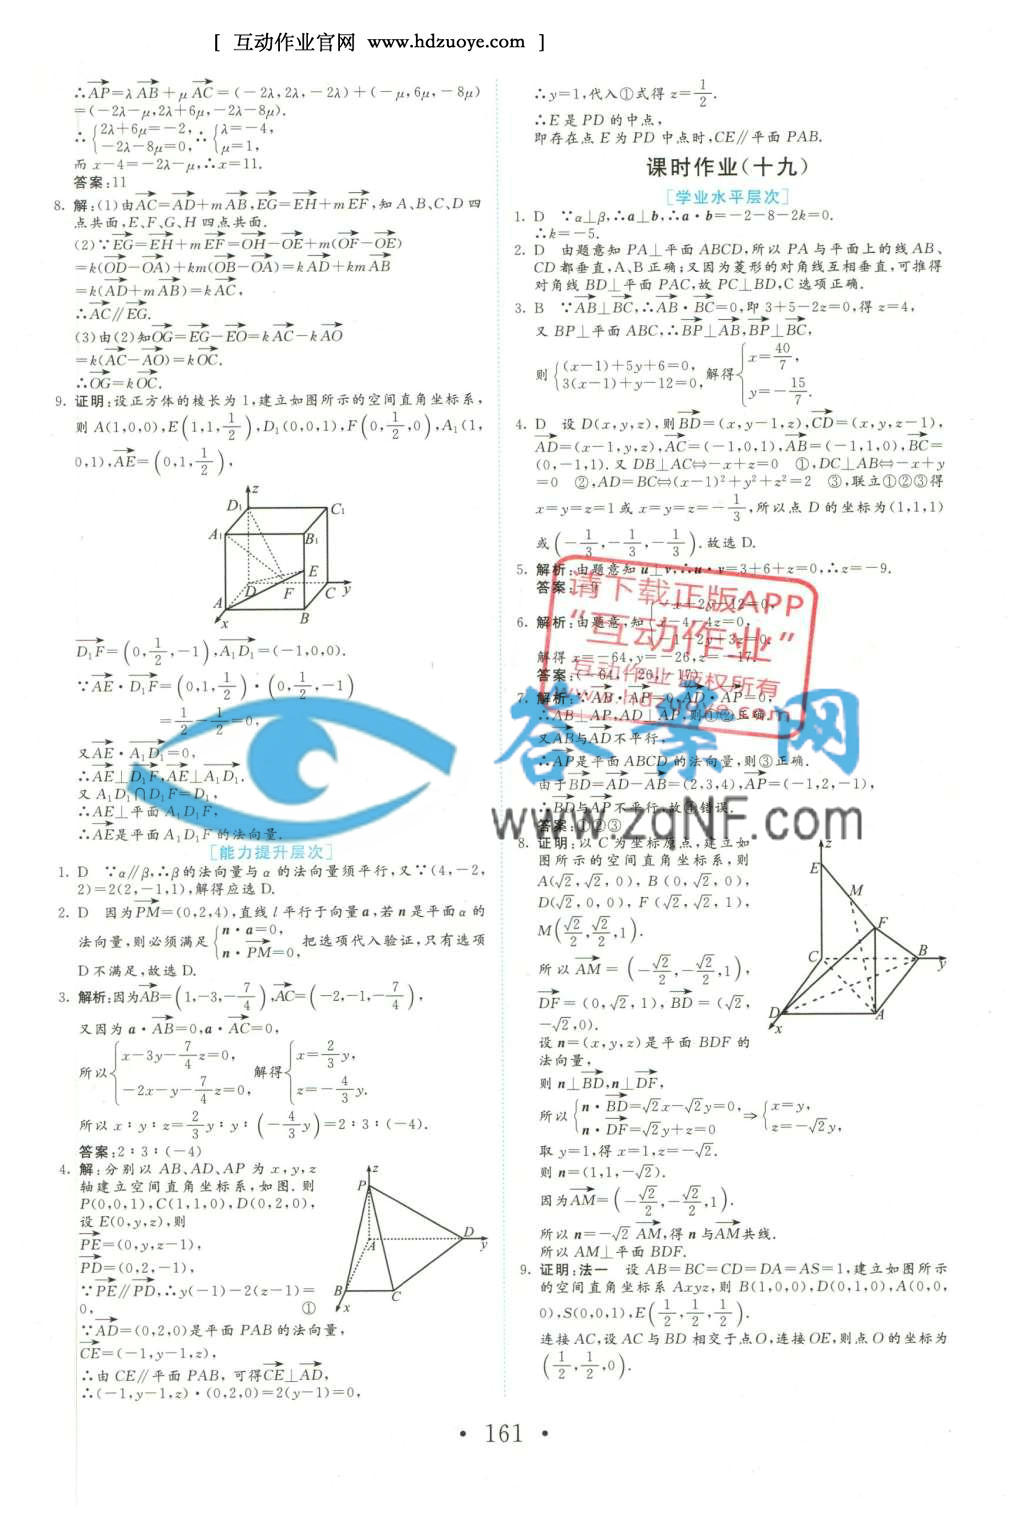 [ 互动作业官网 www.hdzuoye.com ]
∴AP=λAB+μAC=(-2λ,2λ,-2λ)+(-μ,6μ,-8μ)
=(-2λ-μ,2λ+6μ,-2λ-8μ).
∴{2λ+6μ=-2, -2λ-8μ=0, ∴{λ=-4, μ=1,
而 x-4=-2λ-μ,∴x=11.
答案:11
8. 解:(1)由AC=AD+mAB,EG=EH+mEF,知 A、B、C、D 四
点共面,E、F、G、H 四点共面.
(2)∵EG=EH+mEF=OH-OE+m(OF-OE)
=k(OD-OA)+km(OB-OA)=kAD+kmAB
=k(AD+mAB)=kAC,
∴AC∥EG.
(3)由(2)知OG=EG-EO=kAC-kAO
=k(AC-AO)=kOC.
∴OG=kOC.
9. 证明:设正方体的棱长为 1,建立如图所示的空间直角坐标系,
则 A(1,0,0),E(1,1,1/2),D₁(0,0,1),F(0,1/2,0),A₁(1,
0,1),AE=(0,1,1/2),
z
D₁ C₁
A₁ B₁
E
D F C y
A B
x
D₁F=(0,1/2,-1),A₁D₁=(-1,0,0).
∵AE·D₁F=(0,1,1/2)·(0,1/2,-1)
=1/2-1/2=0,
又AE·A₁D₁=0,
∴AE⊥D₁F,AE⊥A₁D₁.
又 A₁D₁∩D₁F=D₁,
∴AE⊥平面 A₁D₁F,
∴AE是平面 A₁D₁F 的法向量.
[能力提升层次]
1. D ∵α∥β,∴β的法向量与 α 的法向量须平行,又∵(4,-2,
2)=2(2,-1,1),解得应选 D.
2. D 因为PM=(0,2,4),直线 l 平行于向量 a,若 n 是平面 α 的
法向量,则必须满足{n·a=0, n·PM=0, 把选项代入验证,只有选项
D 不满足,故选 D.
3. 解析:因为AB=(1,-3,-7/4),AC=(-2,-1,-7/4),
又因为 a·AB=0,a·AC=0,
所以{x-3y-7/4z=0, -2x-y-7/4z=0, 解得{x=2/3y, z=-4/3y.
所以 x∶y∶z=2/3y∶y∶(-4/3y)=2∶3∶(-4).
答案:2∶3∶(-4)
4. 解:分别以 AB、AD、AP 为 x,y,z
轴建立空间直角坐标系,如图.则
P(0,0,1),C(1,1,0),D(0,2,0),
设 E(0,y,z),则
PE=(0,y,z-1),
PD=(0,2,-1),
∵PE∥PD,∴y(-1)-2(z-1)=
0, ①
z
P
A D y
B C
x
∵AD=(0,2,0)是平面 PAB 的法向量,
CE=(-1,y-1,z),
∴由 CE∥平面 PAB,可得CE⊥AD,
∴(-1,y-1,z)·(0,2,0)=2(y-1)=0,
∴y=1,代入①式得 z=1/2.
∴E 是 PD 的中点,
即存在点 E 为 PD 中点时,CE∥平面 PAB.
课时作业(十九)
[学业水平层次]
1. D ∵α⊥β,∴a⊥b,∴a·b=-2-8-2k=0.
∴k=-5.
2. D 由题意知 PA⊥平面 ABCD,所以 PA 与平面上的线 AB、
CD 都垂直,A、B 正确;又因为菱形的对角线互相垂直,可推得
对角线 BD⊥平面 PAC,故 PC⊥BD,C 选项正确.
3. B ∵AB⊥BC,∴AB·BC=0,即 3+5-2z=0,得 z=4,
又 BP⊥平面 ABC,∴BP⊥AB,BP⊥BC,
则{(x-1)+5y+6=0, 3(x-1)+y-12=0, 解得{x=40/7, y=-15/7.
4. D 设 D(x,y,z),则BD=(x,y-1,z),CD=(x,y,z-1),
AD=(x-1,y,z),AC=(-1,0,1),AB=(-1,1,0),BC=
(0,-1,1).又 DB⊥AC⇔-x+z=0 ①,DC⊥AB⇔-x+y
=0 ②,AD=BC⇔(x-1)²+y²+z²=2 ③,联立①②③得
x=y=z=1 或 x=y=z=-1/3,所以点 D 的坐标为(1,1,1)
或(-1/3,-1/3,-1/3).故选 D.
5. 解析:由题意知 u⊥v,∴u·v=3+6+z=0,∴z=-9.
答案:-9
6. 解析:由题意,知{-x+2y-12=0, x-4-4z=0, -1-2y+3z=0.
解得 x=-64,y=-26,z=-17.
答案:(-64,-26,-17)
7. 解析:∵AB·AP=0,AD·AP=0,
∴AB⊥AP,AD⊥AP,则①②正确.
又AB与AD不平行,
∴AP是平面 ABCD 的法向量,则③正确.
由于BD=AD-AB=(2,3,4),AP=(-1,2,-1),
∴BD与AP不平行,故④错误.
答案:①②③
8. 证明:以 C 为坐标原点,建立如
图所示的空间直角坐标系,则
A(√2,√2,0),B(0,√2,0),
D(√2,0,0),F(√2,√2,1),
M(√2/2,√2/2,1).
所以AM=(-√2/2,-√2/2,1),
DF=(0,√2,1),BD=(√2,
-√2,0).
z
E
M
F
C B y
D A
x
设 n=(x,y,z)是平面 BDF 的
法向量,
则 n⊥BD,n⊥DF,
所以{n·BD=√2x-√2y=0, n·DF=√2y+z=0 ⇒{x=y, z=-√2y,
取 y=1,得 x=1,z=-√2.
则 n=(1,1,-√2).
因为AM=(-√2/2,-√2/2,1).
所以 n=-√2AM,得 n 与AM共线.
所以 AM⊥平面 BDF.
9. 证明:法一 设 AB=BC=CD=DA=AS=1,建立如图所示
的空间直角坐标系 Axyz,则 B(1,0,0),D(0,1,0),A(0,0,
0),S(0,0,1),E(1/2,1/2,1/2).
连接 AC,设 AC 与 BD 相交于点 O,连接 OE,则点 O 的坐标为
(1/2,1/2,0).
请下载正版APP
“互动作业”
互动作业 版权所有
答案网
www.zqNF.com
• 161 •